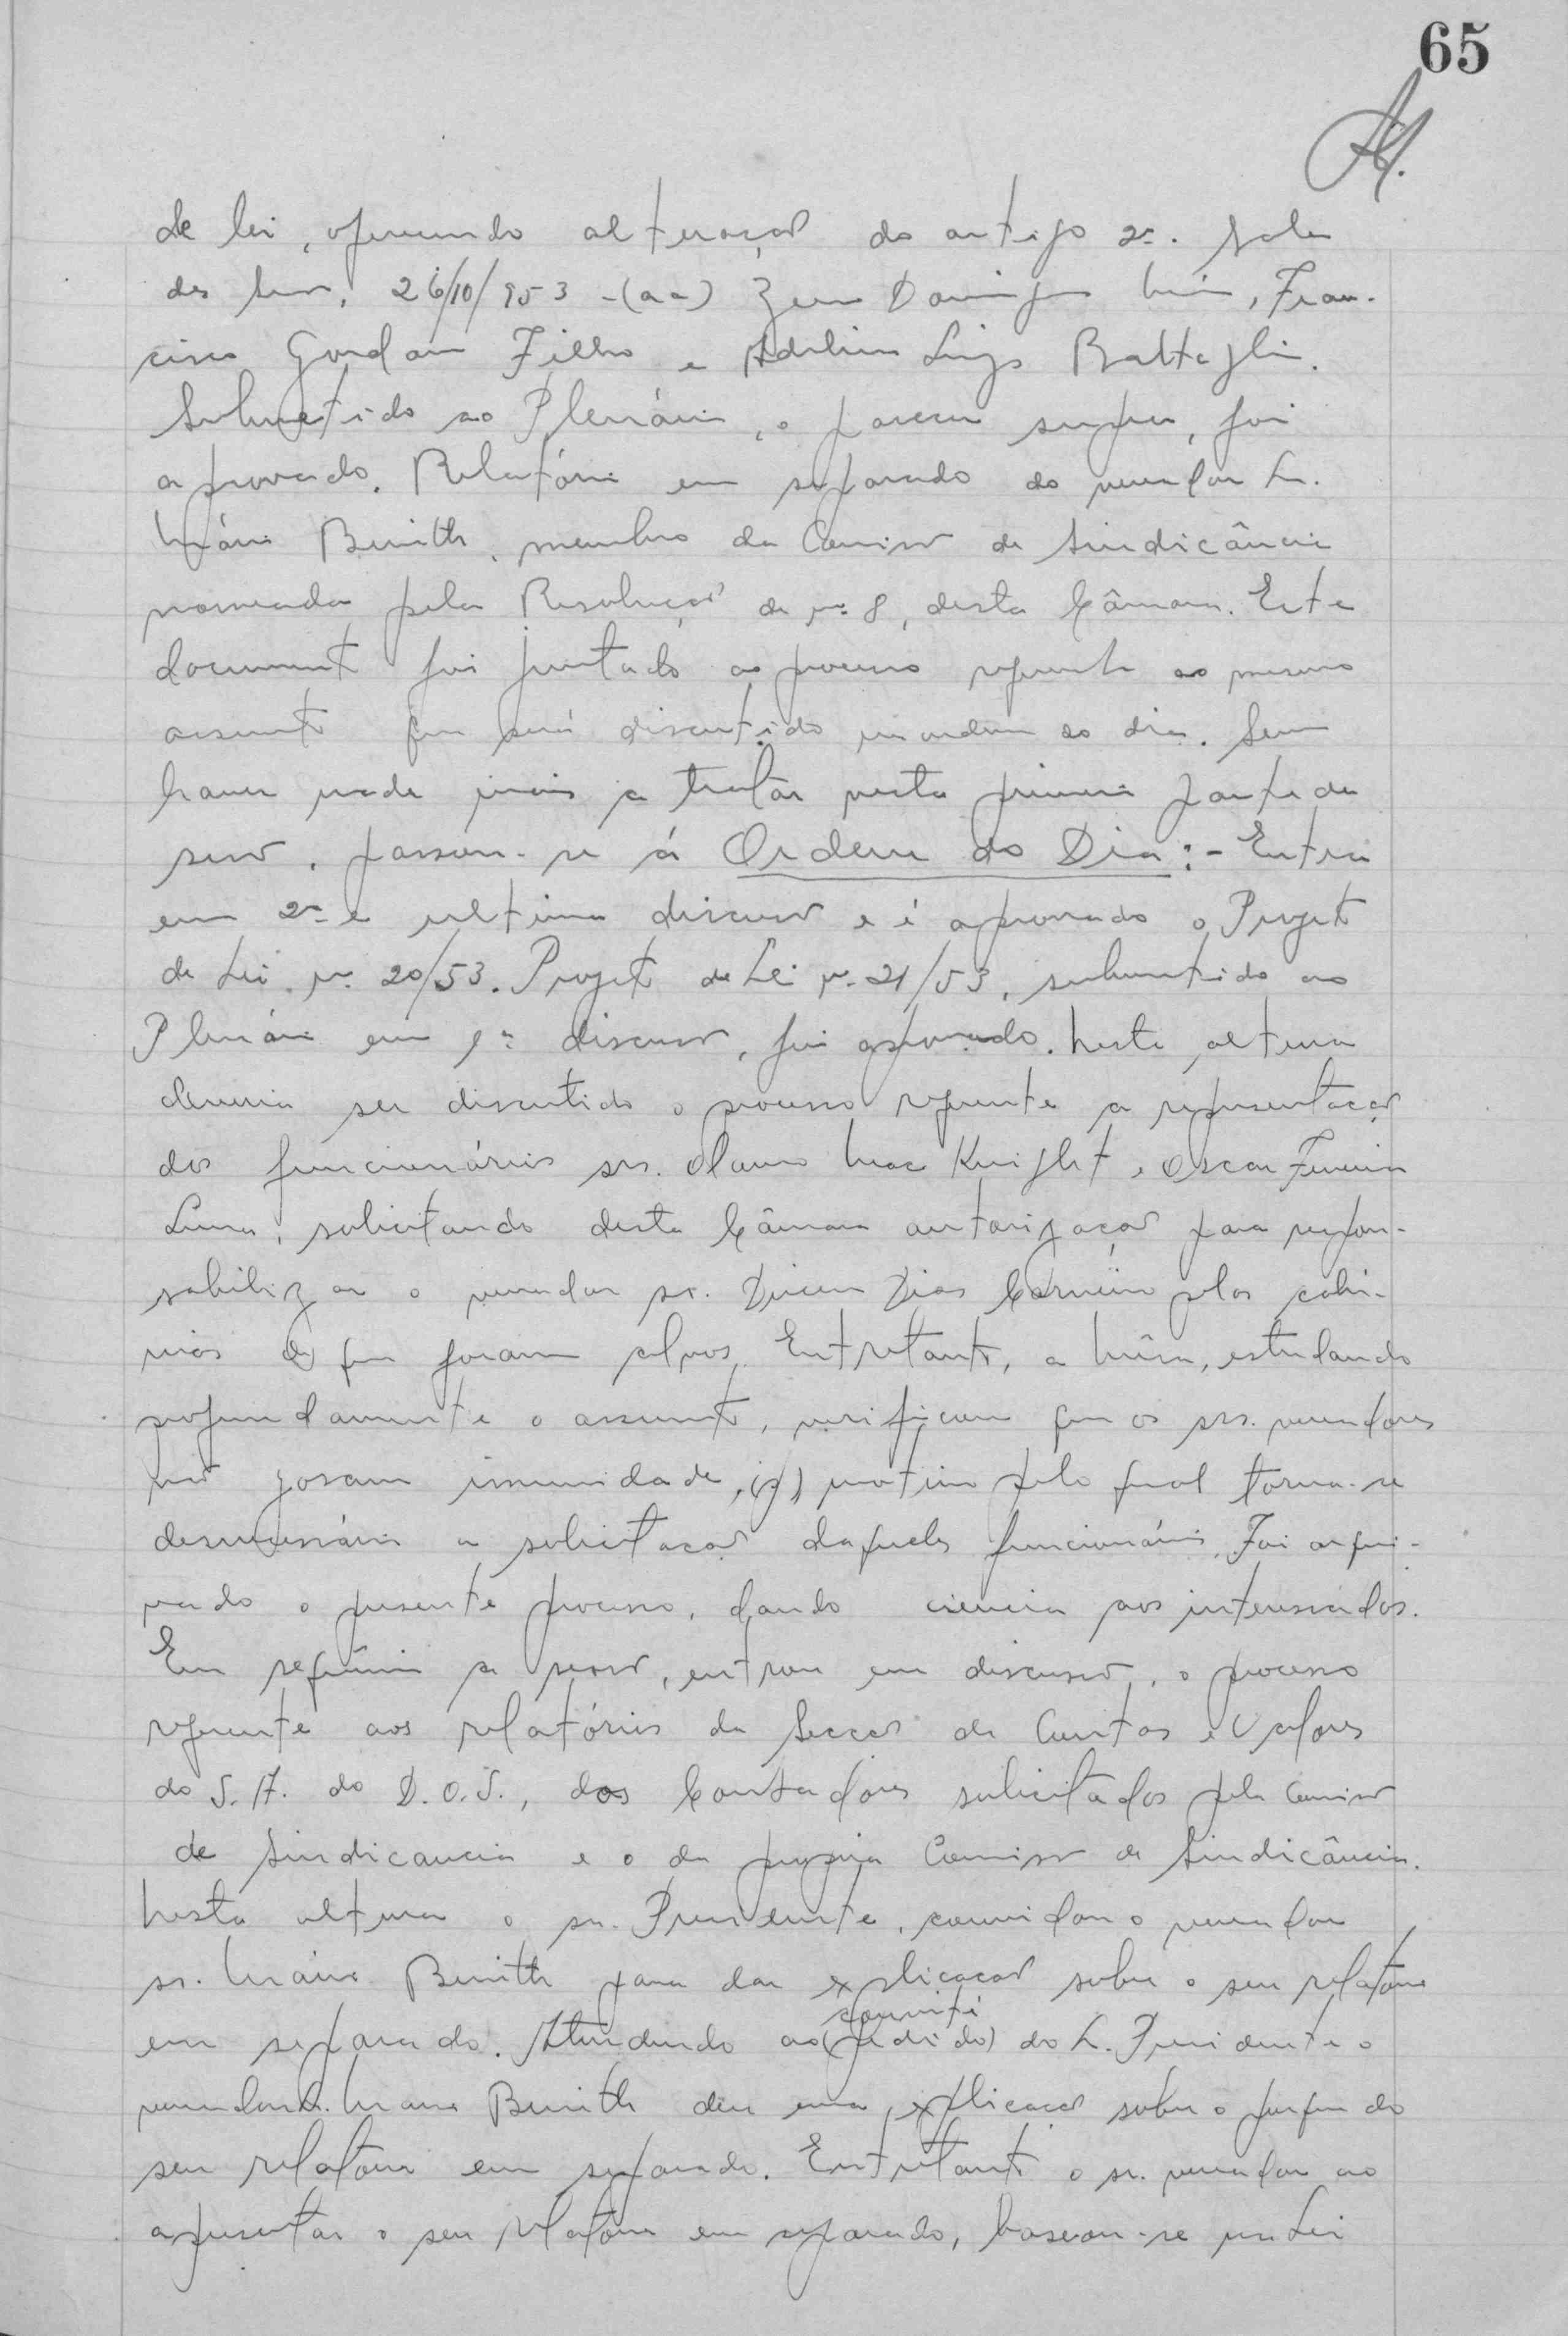 65
de lei, oferecendo alteração do artigo 2º. Sala
das Ses. 26/10/953 -(aa) Domingos Fran-
cisco Gordan Filho e Adelino Luigi Battaglin.
Submetido ao Plenário, o parecer supra, foi
aprovado. Relatório em separado do vereador Sr.
Mário Benith, membro da Comissão de Sindicância
nomeada pela Resolução de nº 8, desta Câmara. Este
documento foi juntado ao processo referente ao mesmo
assunto que será discutido na ordem do dia. Sem
haver nada mais a tratar nesta primeira parte da
sessão, passou-se á Ordem do Dia:- Entra
em 2ª e ultima discussão e é aprovado o Projeto
de Lei nº 20/53. Projeto de Lei nº 21/53, submetido ao
Plenário em 1ª discussão, foi aprovado. Nesta altura
deveria ser discutido o processo referente a representação
dos funcionários srs. Olavo Mac Knight e Oscar Ferreira
Lima, solicitando desta Câmara autorização para respon-
sabilizar o vereador sr. Dirceu Dias Carneiro pelas calú-
nias de que foram alvos. Entretanto, a Mesa, estudando
profundamente o assunto, verificou que os srs. vereadores
não gosam imunidade, motivo pelo qual torna-se
desnecessária a solicitação daqueles funcionários. Foi arqui-
vado o presente processo, dando ciencia aos interessados.
Em seguimento a sessão, entrou em discussão, o processo
referente aos relatórios da Secção de Contas e Valores
do S.A. do D.O.S., dos Contadores solicitados pela Comissão
de Sindicancia e o da propria Comissão de Sindicância.
Nesta altura o sr. Presidente, convidou o vereador
sr. Mário Benith para dar explicação sobre o seu relatório
em separado. Atendendo ao (pedido) convite do Sr. Presidente o
vereador Sr. Mario Benith deu uma explicação sobre o porque do
seu relatório em separado. Entretanto o sr. vereador ao
apresentar o seu relatório em separado, baseou-se na Lei